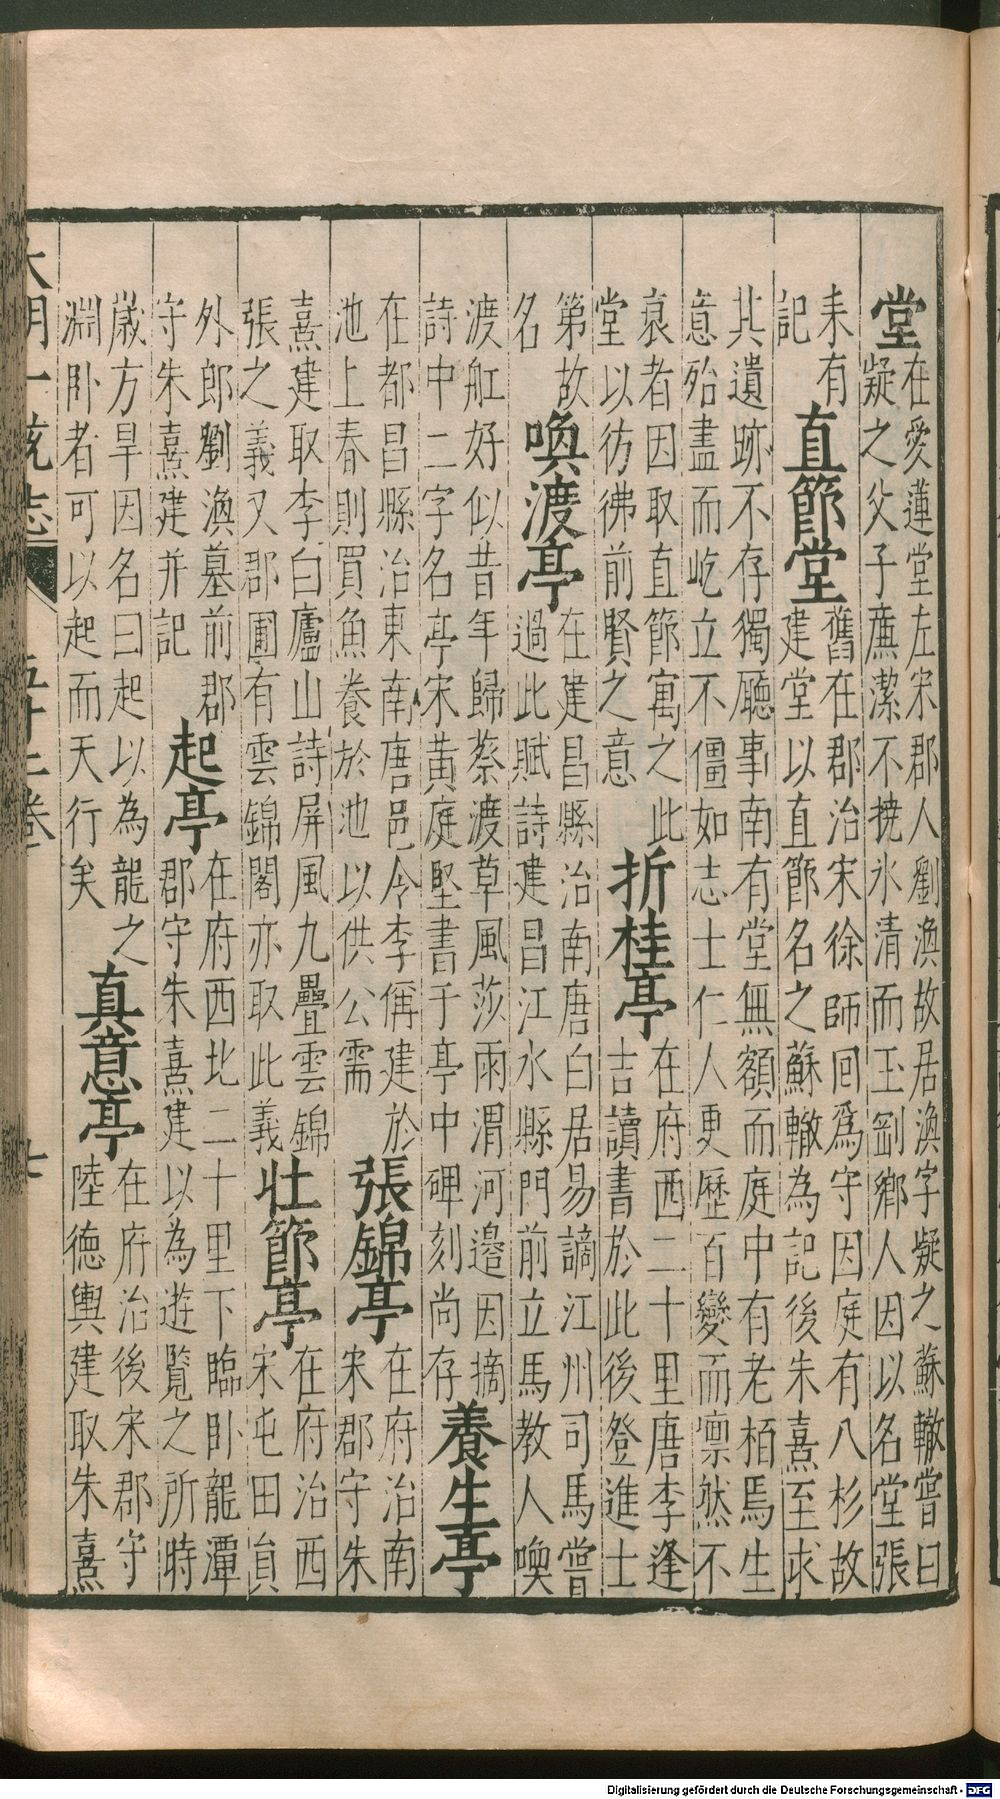 堂
在愛蓮堂左宋郡人劉渙故居渙字凝之蘇轍嘗曰
凝之父子㢘潔不撓氷清而玉剛鄉人因以名堂張
耒有
記
直節堂
舊在郡治宋徐師回爲守因庭有八杉故
建堂以直節名之蘇轍為記後朱熹至求
其遺跡不存獨聽事南有堂無額而庭中有老栢焉生
意殆盡而屹立不僵如志士仁人更歷百變而凛然不
衰者因取直節寓之此
堂以彷彿前賢之意
折桂亭
在府西二十里唐李逢
吉讀書於此後登進士
第故
名
喚渡亭
在建昌縣治南唐白居易謫江州司馬嘗
過此賦詩建昌江水縣門前立馬教人喚
渡舡好似昔年歸蔡渡草風莎雨渭河邉因摘
詩中二字名亭宋黃庭堅書于亭中碑刻尚存
養生亭
在都昌縣治東南唐邑令李偁建於
池上春則買魚養於池以供公需
張錦亭
在府治南
宋郡守朱
熹建取李白廬山詩屏風九疊雲錦
張之義又郡圃有雲錦閣亦取此義
壯節亭
在府治西
宋屯田貟
外郎劉渙墓前郡
守朱熹建幷記
起亭
在府西北二十里下臨卧龍潭
郡守朱熹建以為遊覽之所時
歲方旱因名曰起以為龍之
淵卧者可以起而天行矣
真意亭
在府治後宋郡守
陸徳輿建取朱熹
大明一統志 五十二卷 七
Digitalisierung gefördert durch die Deutsche Forschungsgemeinschaft - DFG